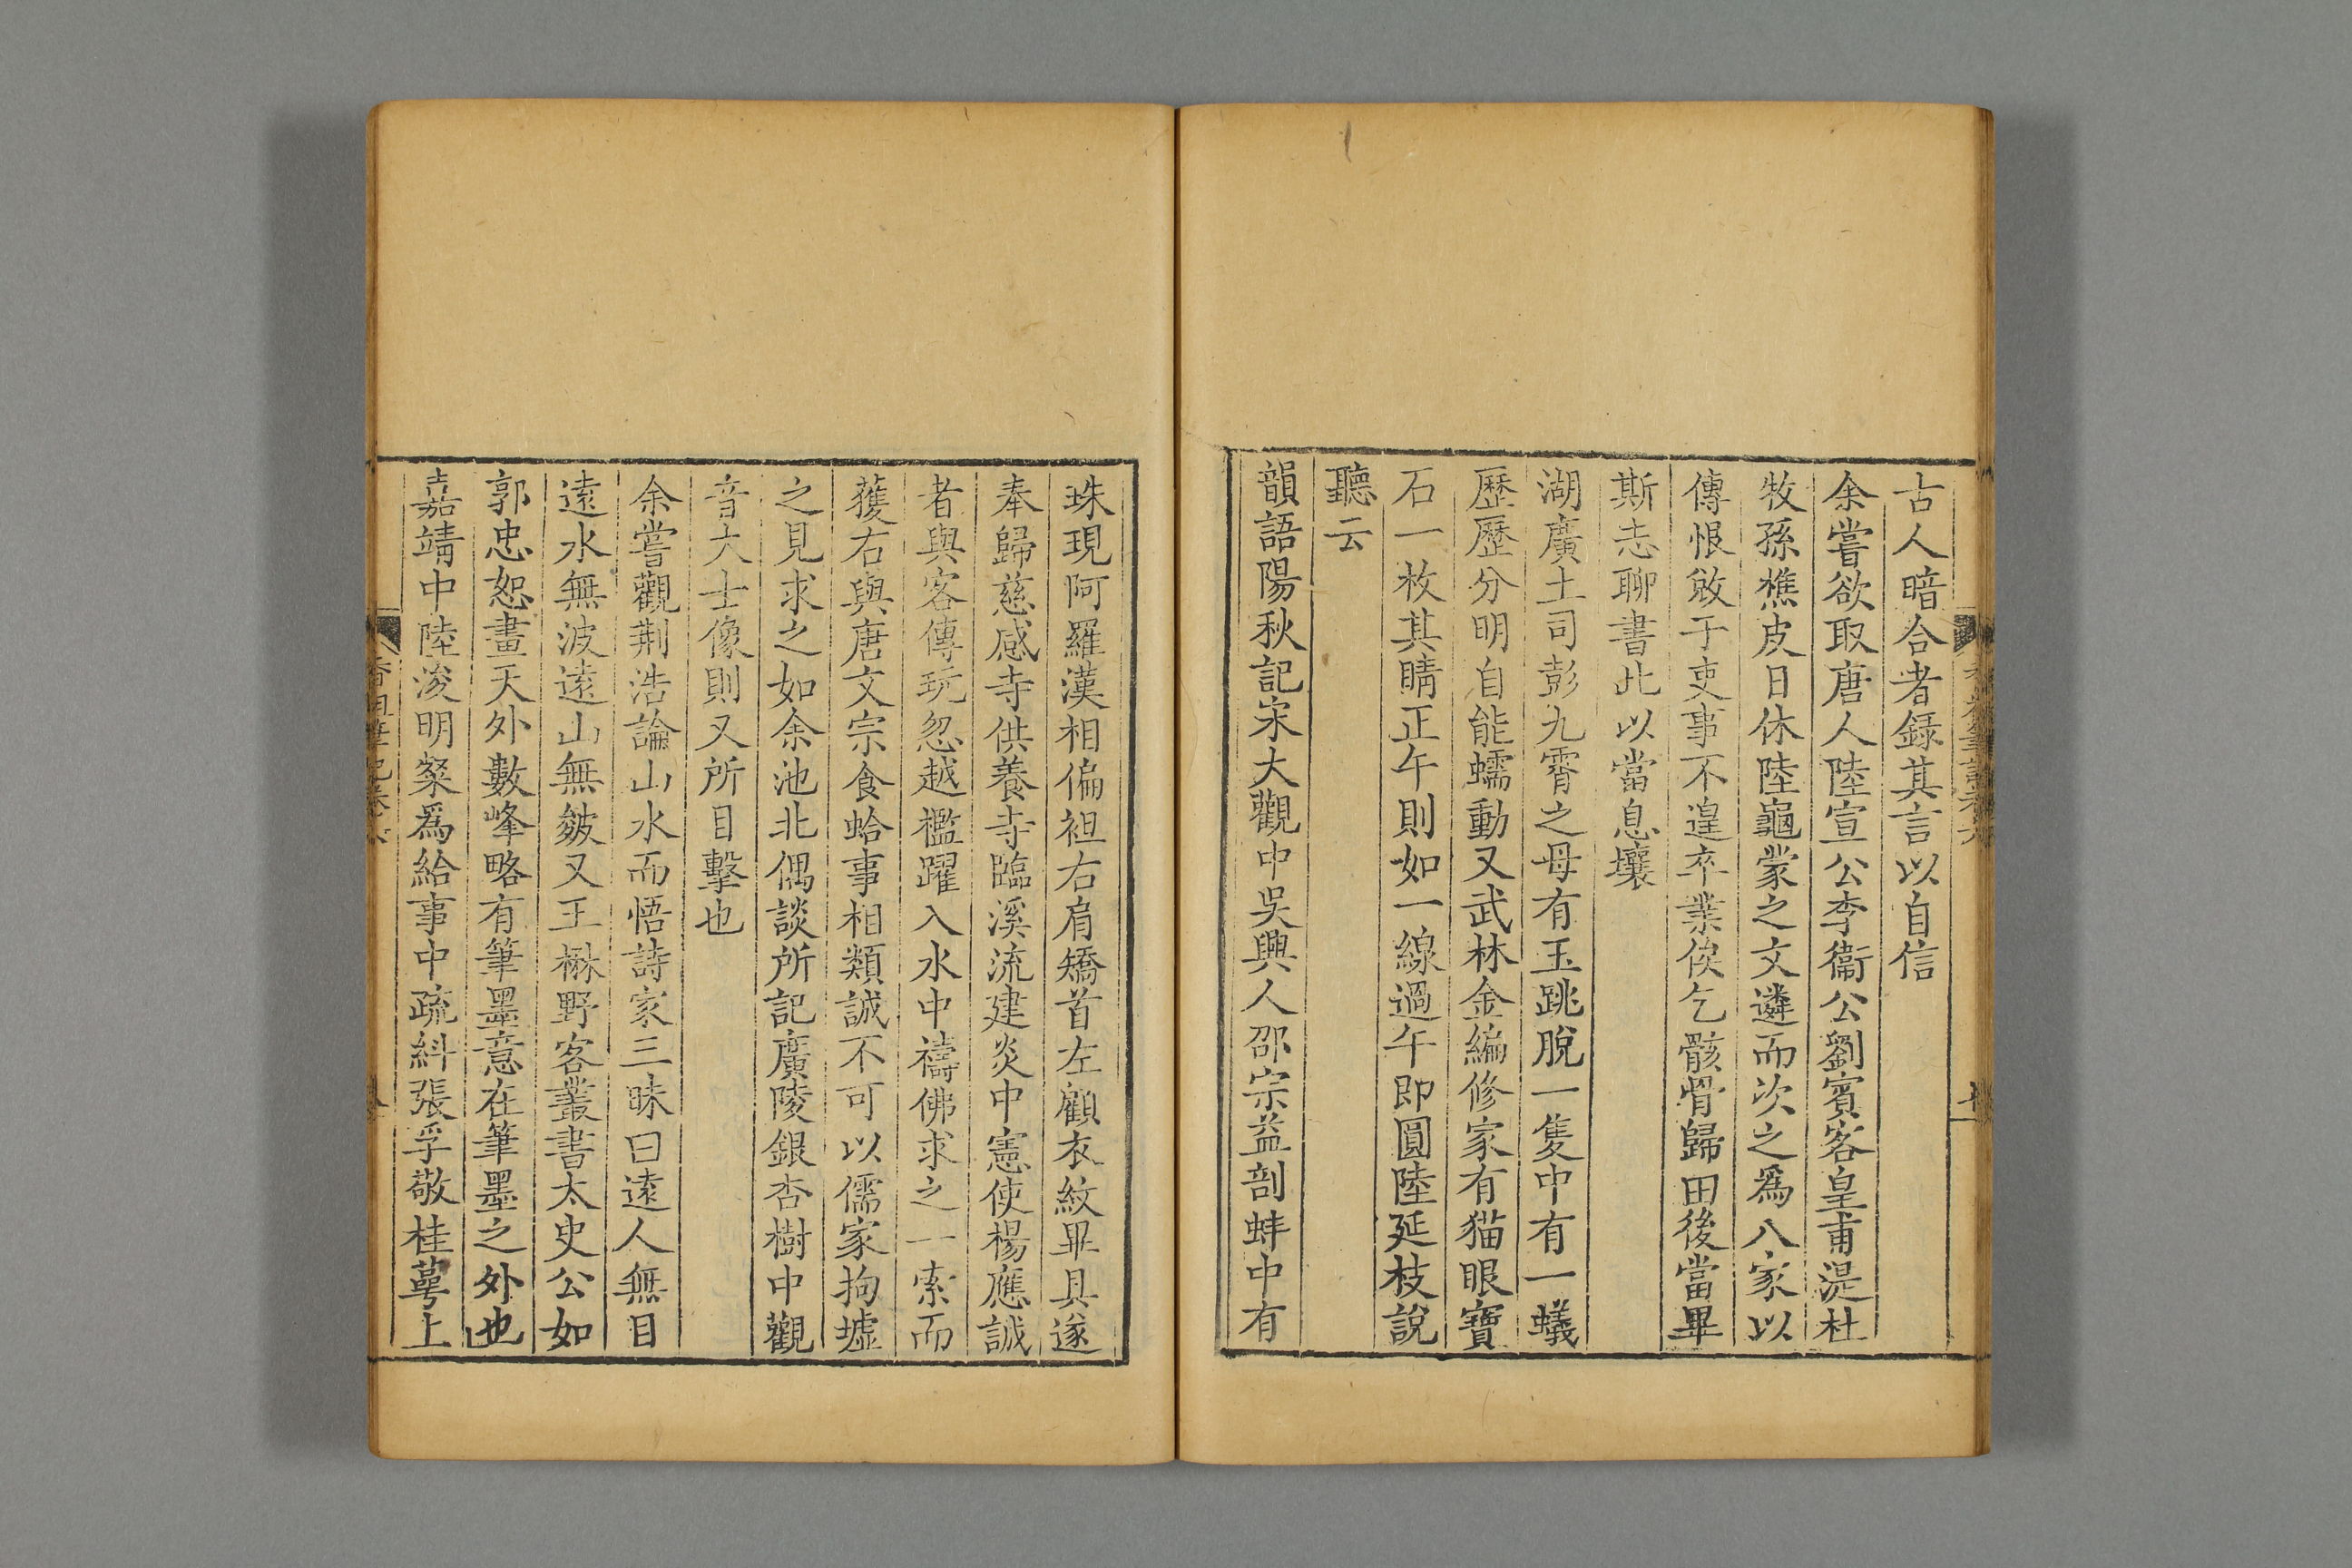 古人暗合者録其言以自信
余嘗欲取唐人陸宣公李衞公劉賓客皇甫湜杜
牧孫樵皮日休陸龜蒙之文遴而次之爲八家以
傳恨敓于吏事不遑卒業俟乞骸骨歸田後當畢
斯志聊書此以當息壤
湖廣土司彭九霄之母有玉跳脫一隻中有一蟻
歷歷分明自能蠕動又武林金編修家有猫眼寶
石一枚其睛正午則如一線過午即圓陸延枝說
聽云
韻語陽秋記宋大觀中吳興人邵宗益剖蚌中有
珠現阿羅漢相偏袒右肩矯首左顧衣紋畢具遂
奉歸慈感寺供養寺臨溪流建炎中憲使楊應誠
者與客傳玩忽越檻躍入水中禱佛求之一索而
獲右與唐文宗食蛤事相類誠不可以儒家拘墟
之見求之如余池北偶談所記廣陵銀杏樹中觀
音大士像則又所目擊也
余嘗觀荆浩論山水而悟詩家三昧曰遠人無目
遠水無波遠山無皴又王楙野客叢書太史公如
郭忠恕畫天外數峰略有筆墨意在筆墨之外也
嘉靖中陸浚明粲爲給事中疏糾張孚敬桂萼上